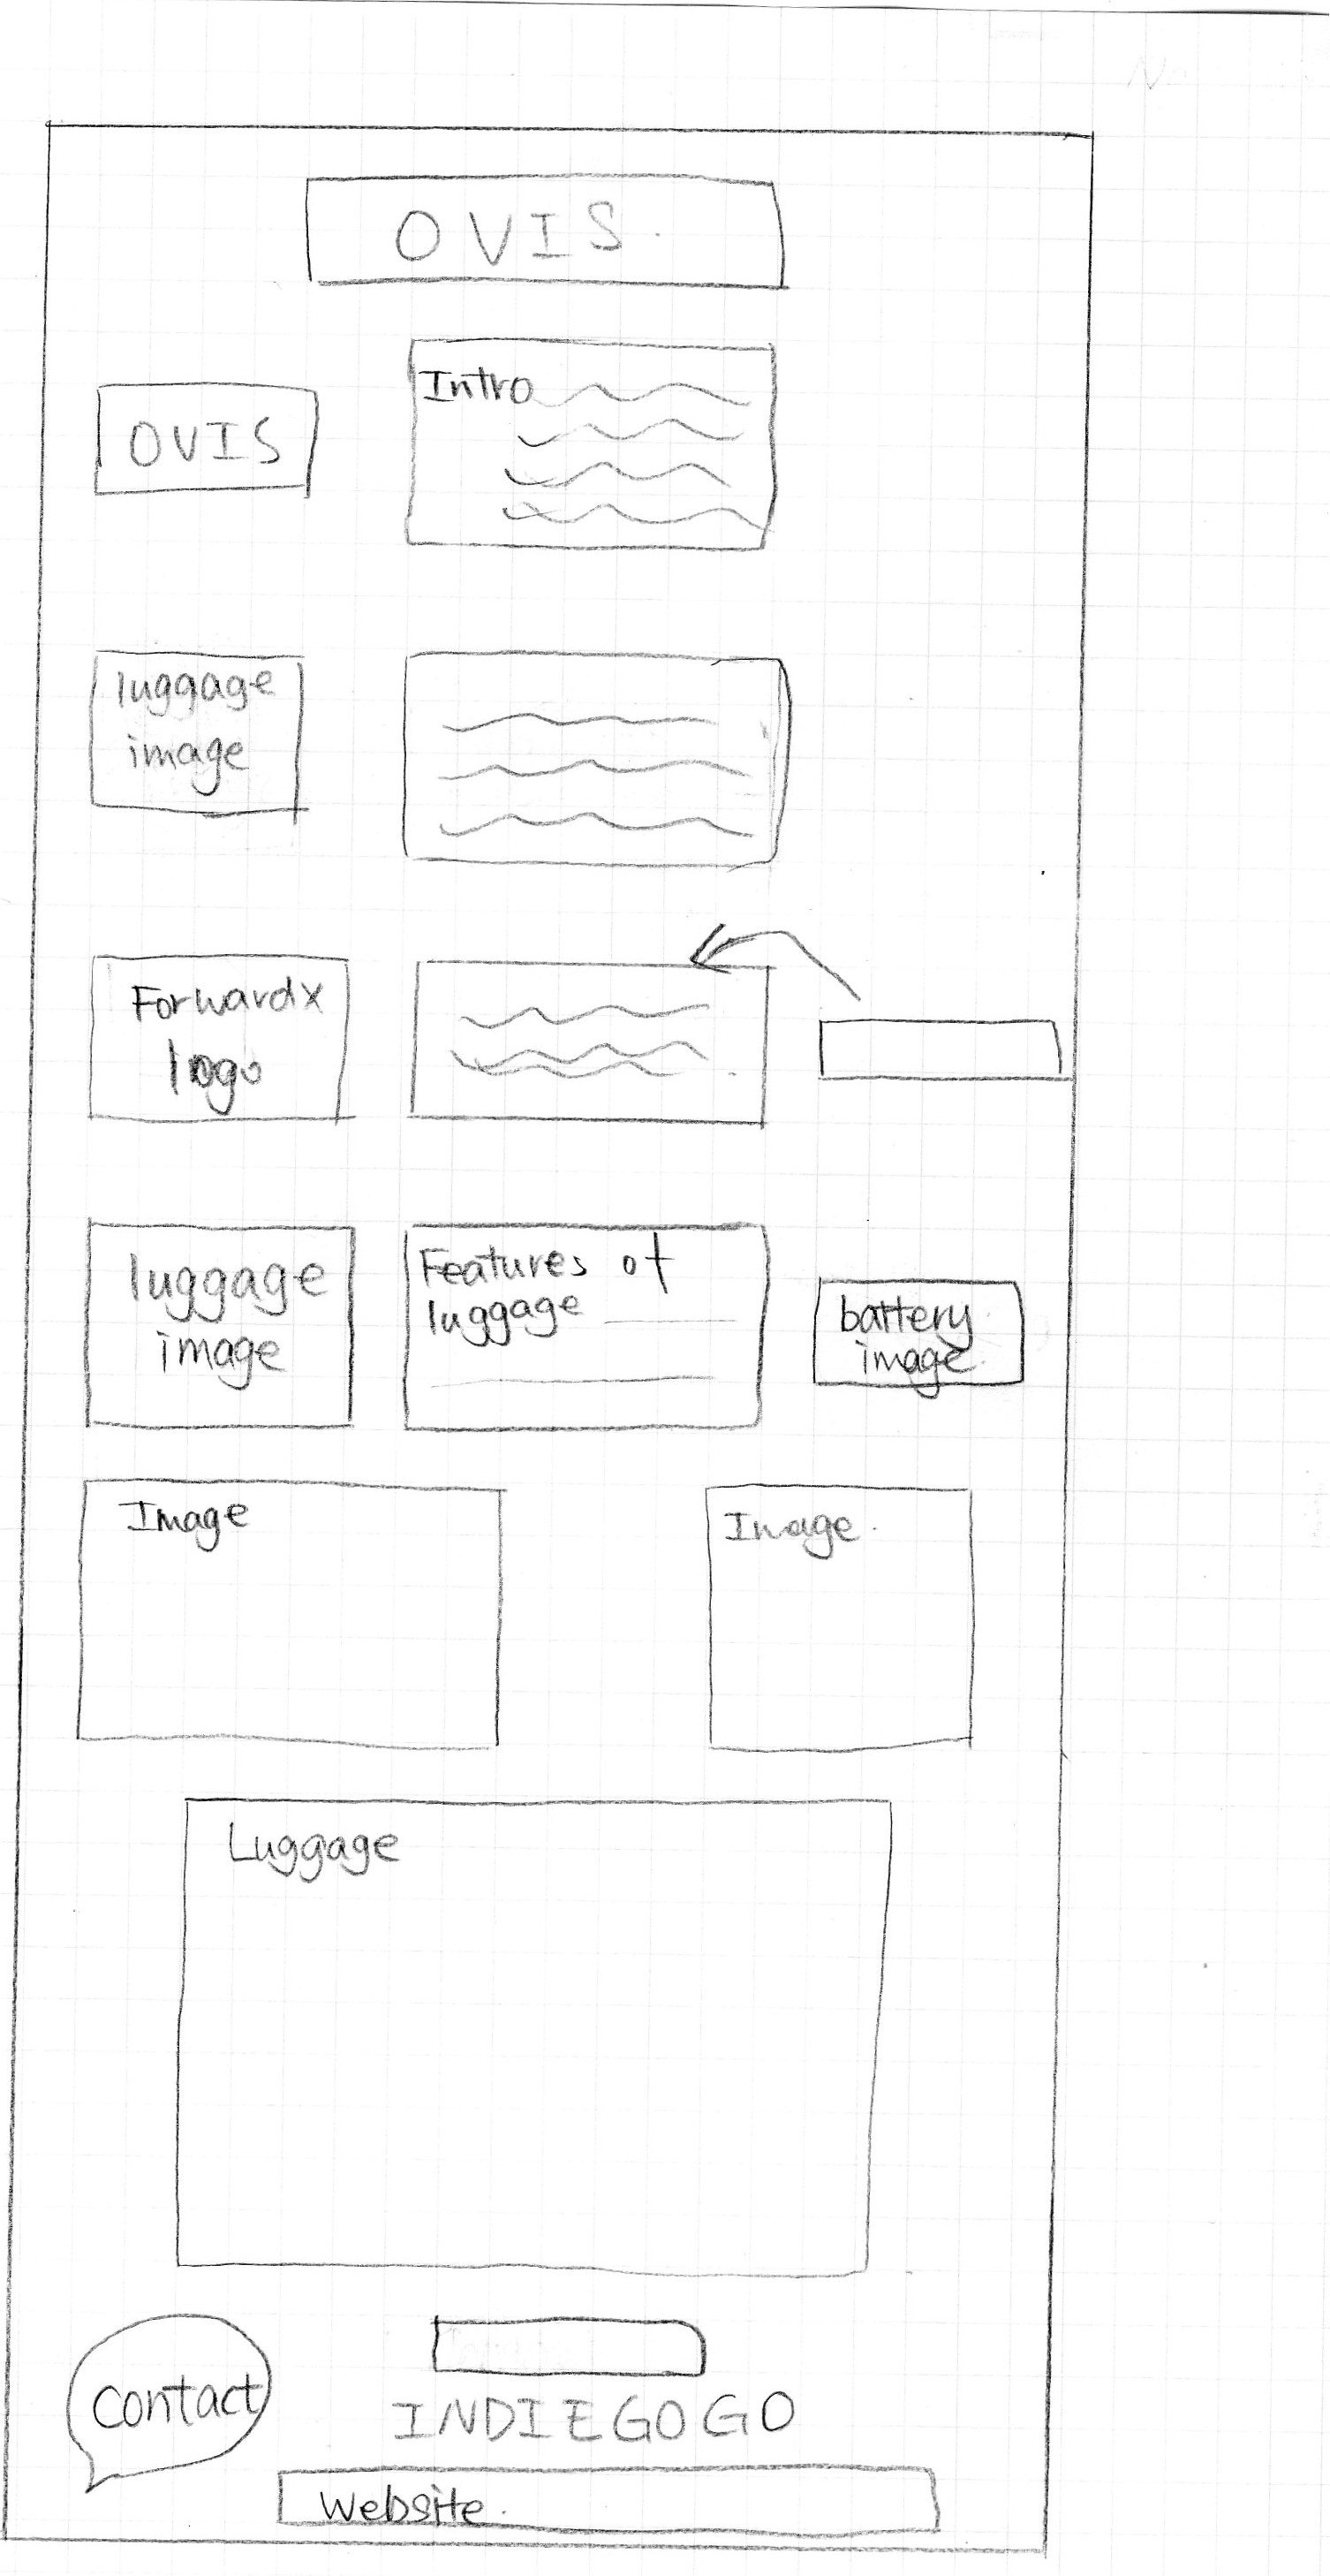 OVIS
Intro
OVIS
luggage
image
Forwardx
logo
luggage
image
Features of
luggage
battery
image
Image
Image
Luggage
Contact
INDIEGOGO
Website